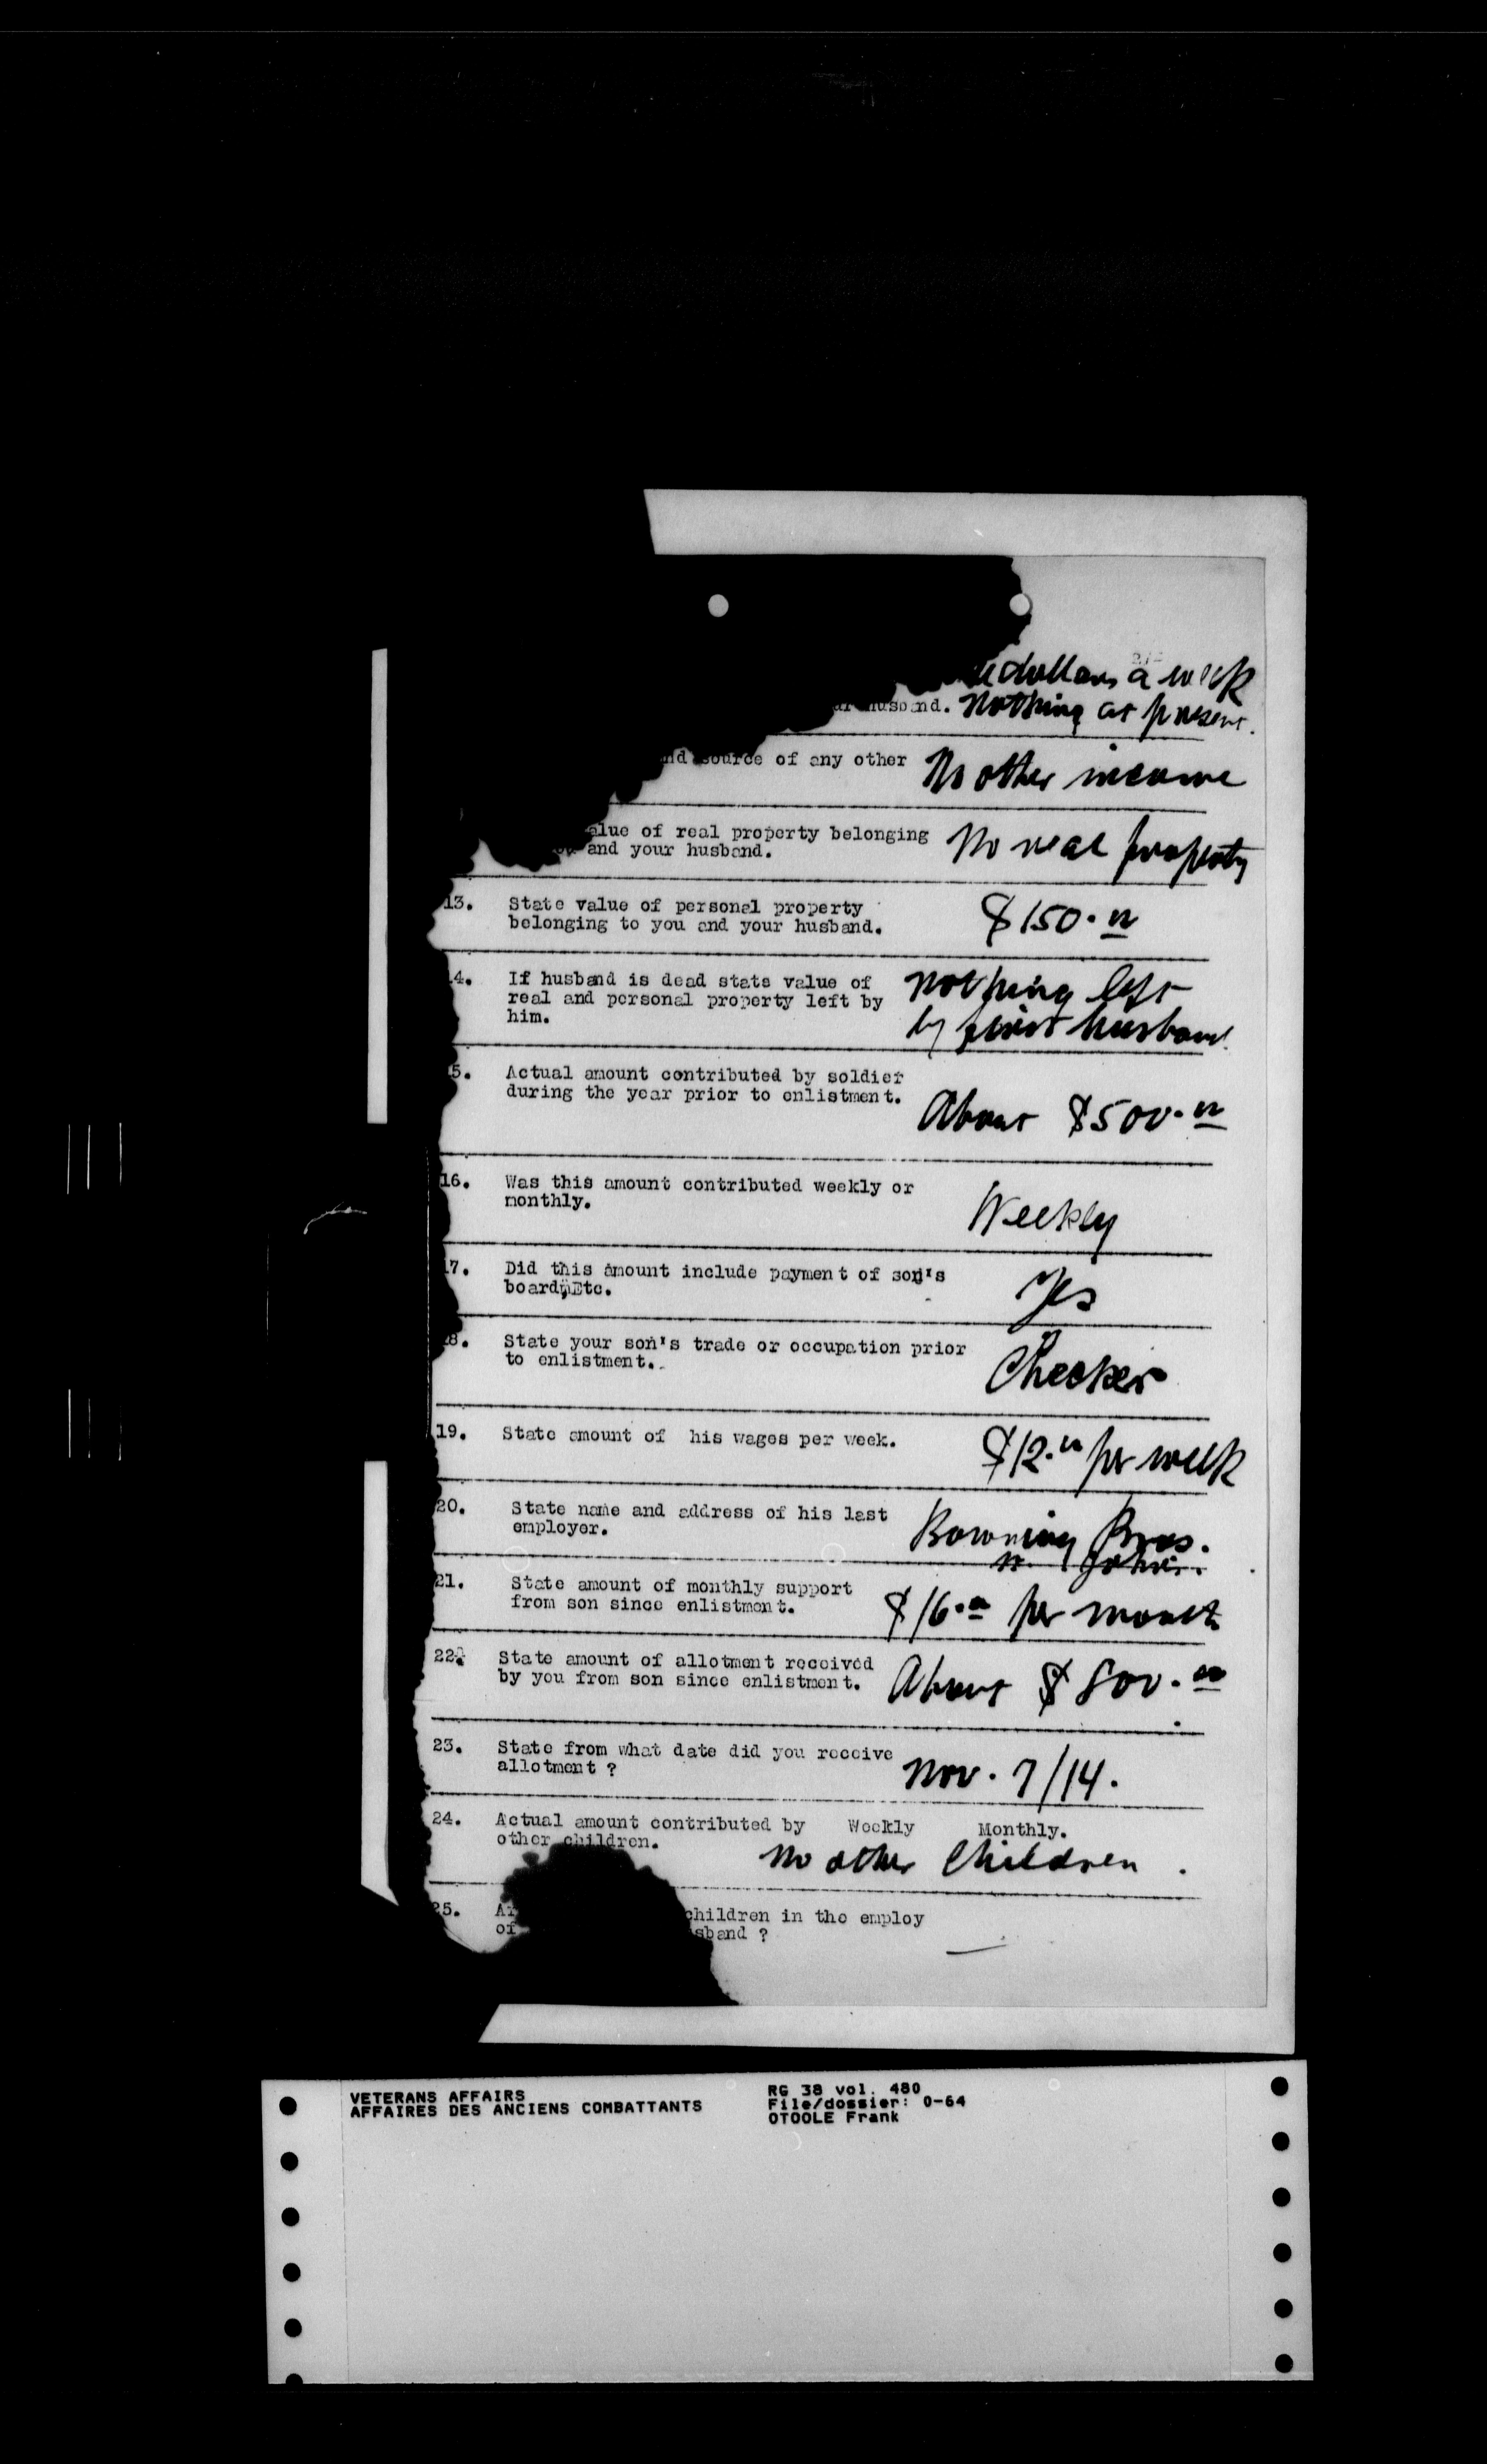 dollars a week
husband. Nothing at present.
source of any other No other income
alue of real property belonging No real property
and your husband.
13. State value of personal property $150.00
belonging to you and your husband.
4. If husband is dead state value of Nothing left
real and personal property left by
him. by first husband.
5. Actual amount contributed by soldier
during the year prior to enlistment. About $500.00
16. Was this amount contributed weekly or
monthly. Weekly
7. Did this amount include payment of son's Yes
board, Etc.
8. State your son's trade or occupation prior
to enlistment. Checker
19. State amount of his wages per week. $12.00 per week
20. State name and address of his last
employer. Bros.
21. State amount of monthly support
from son since enlistment. $16.00 per month
22. State amount of allotment received
by you from son since enlistment. About $800.00
23. State from what date did you receive
allotment ? Nov. 7/14.
24. Actual amount contributed by Weekly Monthly.
other children. No other Children.
25. children in the employ
of sband ?
VETERANS AFFAIRS
AFFAIRES DES ANCIENS COMBATTANTS
RG 38 vol. 480
File/dossier: O-64
OTOOLE Frank